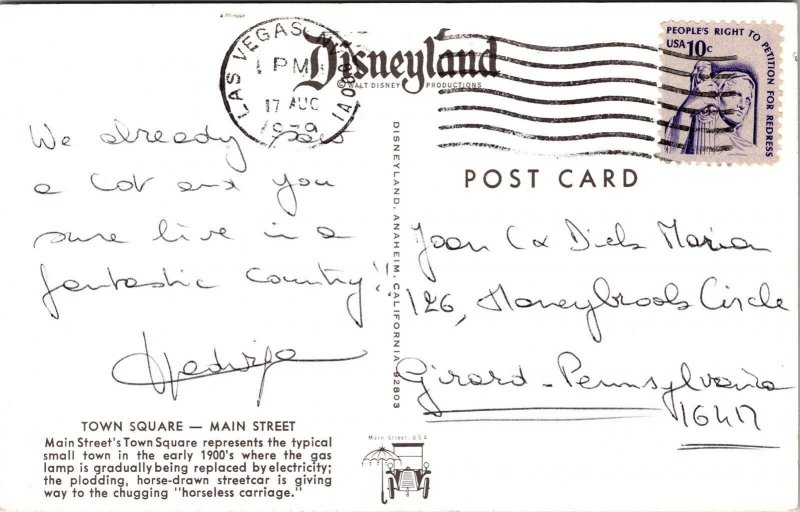 LAS VEGAS, NV
1 PM
17 AUG
1979
Disneyland
© WALT DISNEY PRODUCTIONS
PEOPLE'S RIGHT TO PETITION FOR REDRESS
USA 10c
We already saw
a lot and you
sure live in a
fantastic country!!
Hedwige
DISNEYLAND, ANAHEIM, CALIFORNIA 92803
POST CARD
Joan & Dick Marian
126, Honeybrook Circle
Girard - Pennsylvania
16417
TOWN SQUARE — MAIN STREET
Main Street's Town Square represents the typical
small town in the early 1900's where the gas
lamp is gradually being replaced by electricity;
the plodding, horse-drawn streetcar is giving
way to the chugging "horseless carriage."
Main Street, U.S.A